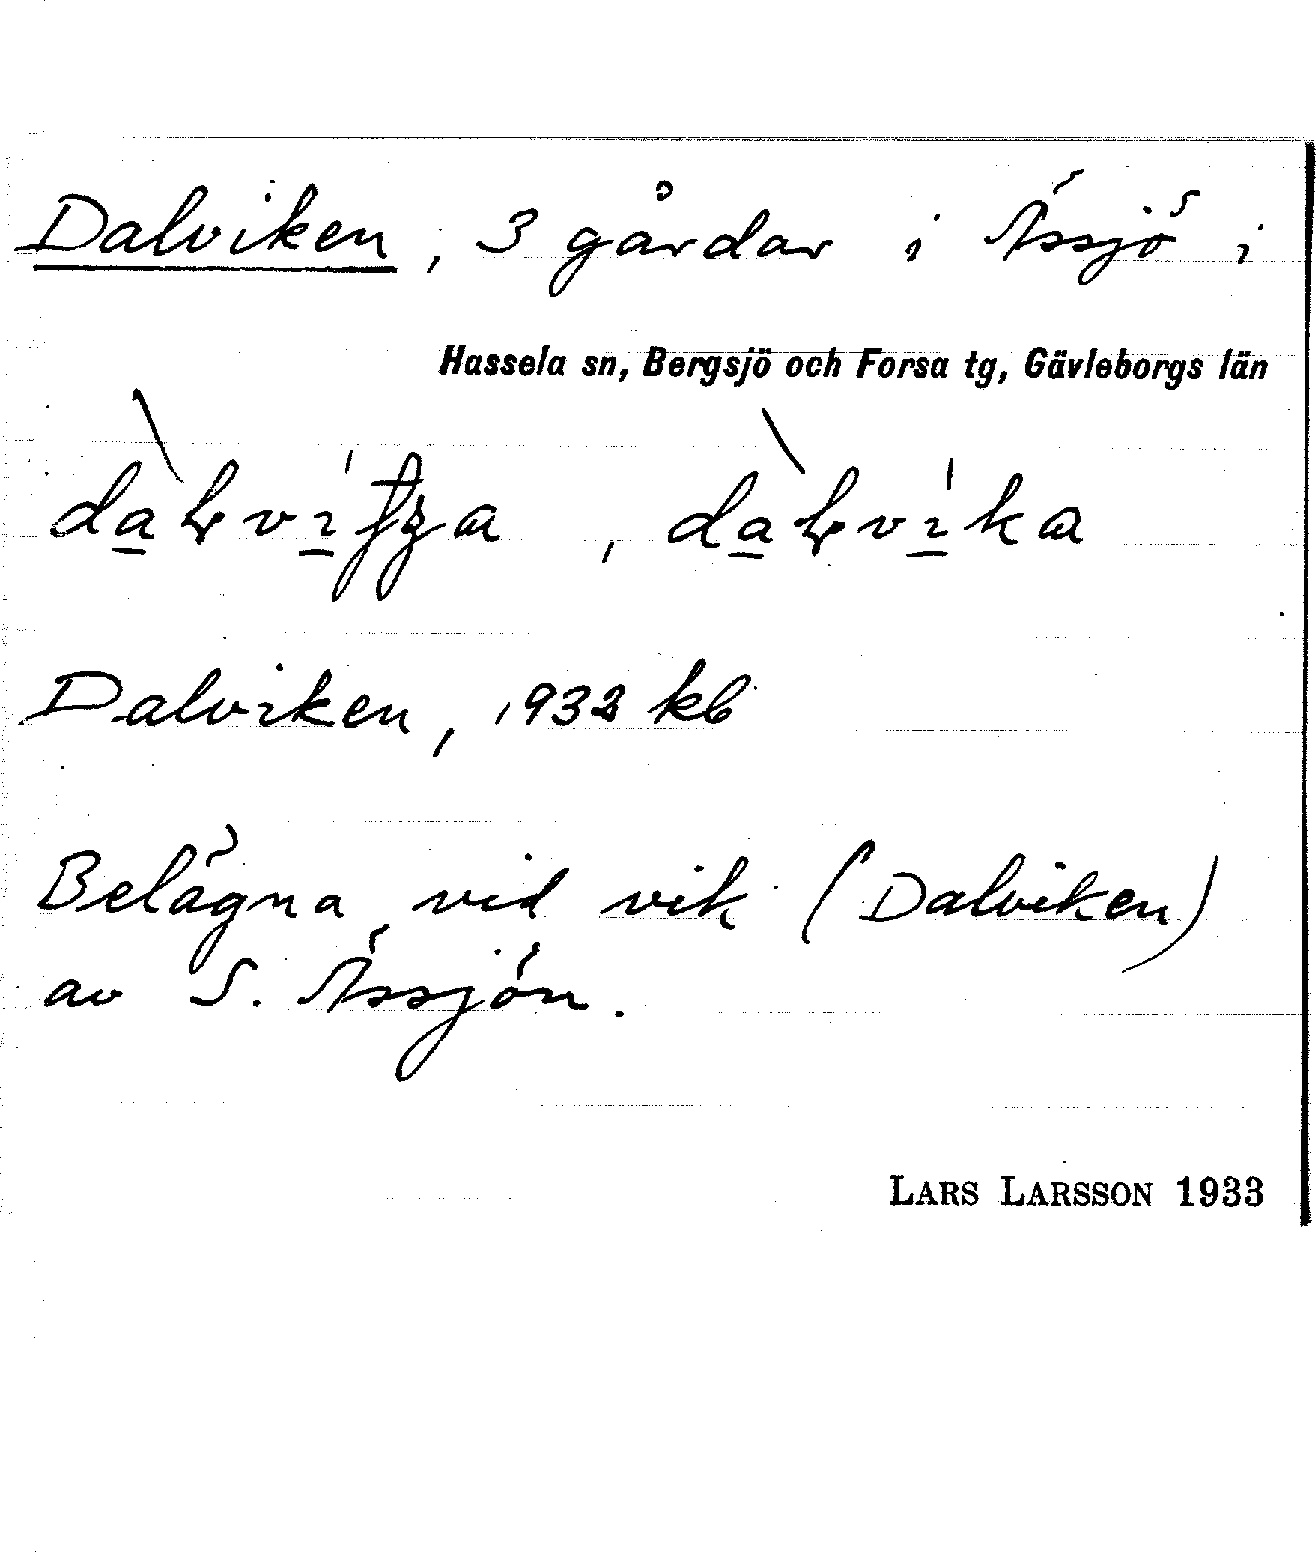 Dalviken, 3 gårdar i Ässjö i
Hassela sn, Bergsjö och Forsa tg, Gävleborgs län
Dalviken, 1932 kb
Belägna vid vik (Dalviken)
av S. Ässjön.
LARS LARSSON 1933